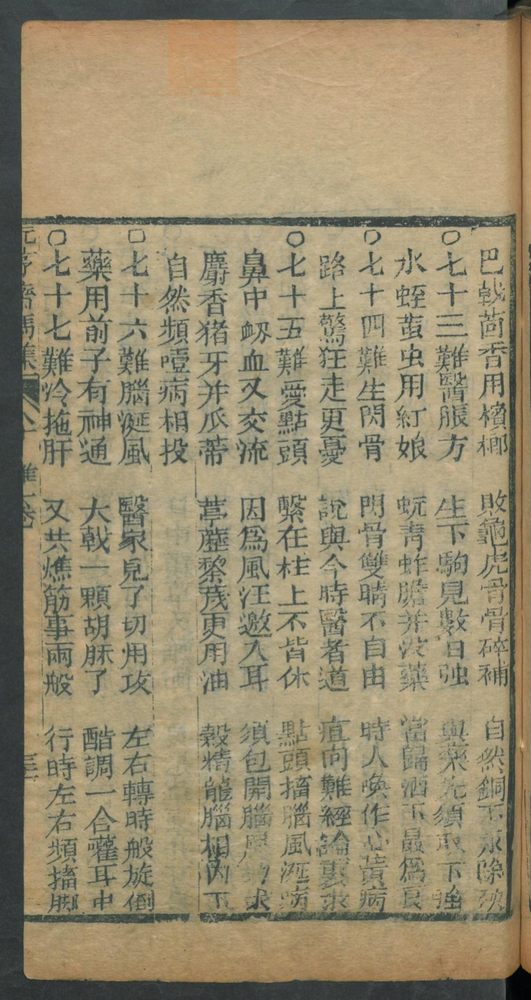 巴戟茴香用檳榔 敗龜虎骨骨碎補 自然銅 除殃
○七十三難醫脹方 生下駒見數日強 與藥先須取下
水蛭䖟虫用紅娘 蚖青蚱膽并沒藥 當歸酒下最為良
○七十四難生閃骨 閃骨雙睛不自由 時人喚作心黃病
路上驚狂走更憂 說與今時醫者道 直向難經論裏求
○七十五難愛點頭 繫在柱上不皆休 點頭搐腦風涎病
鼻中衂血又交流 因為風汪邀入耳 須包開腦
麝香猪牙并瓜蒂 葶藶黎蘆更用油 穀精龍腦相
自然頻噎病相投
○七十六難腦涎風 醫家見了切用攻 左右轉時般旋倒
藥用前子有神通 大戟一顆胡麻了 醋調一合灌耳中
○七十七難冷拖肝 又共燋筋事兩般 行時左右頻搐脚
元亨療馬集 卷 三